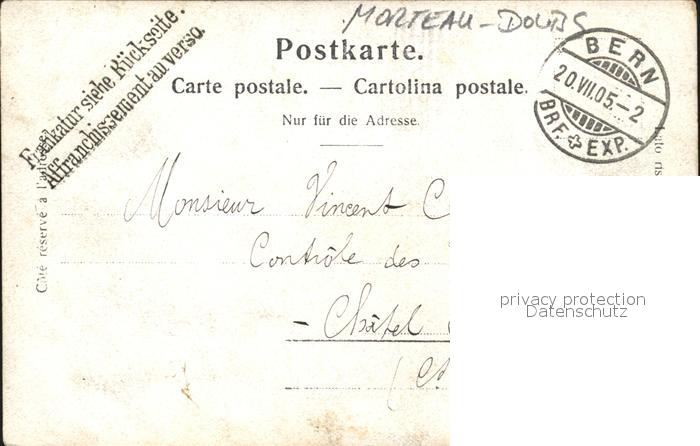 MORTEAU - DOUBS
Frankatur siehe Rückseite.
Affranchissement au verso.
Postkarte.
Carte postale. — Cartolina postale.
Nur für die Adresse.
BERN
20.VII.05.-2
BRF. EXP.
Côté réservé à l'adresse
Lato ris
Monsieur Vincent C
Contrôle des
- Châtel
privacy protection
Datenschutz